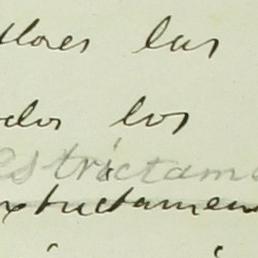 llores las
ados los
estrictame
extrictamen